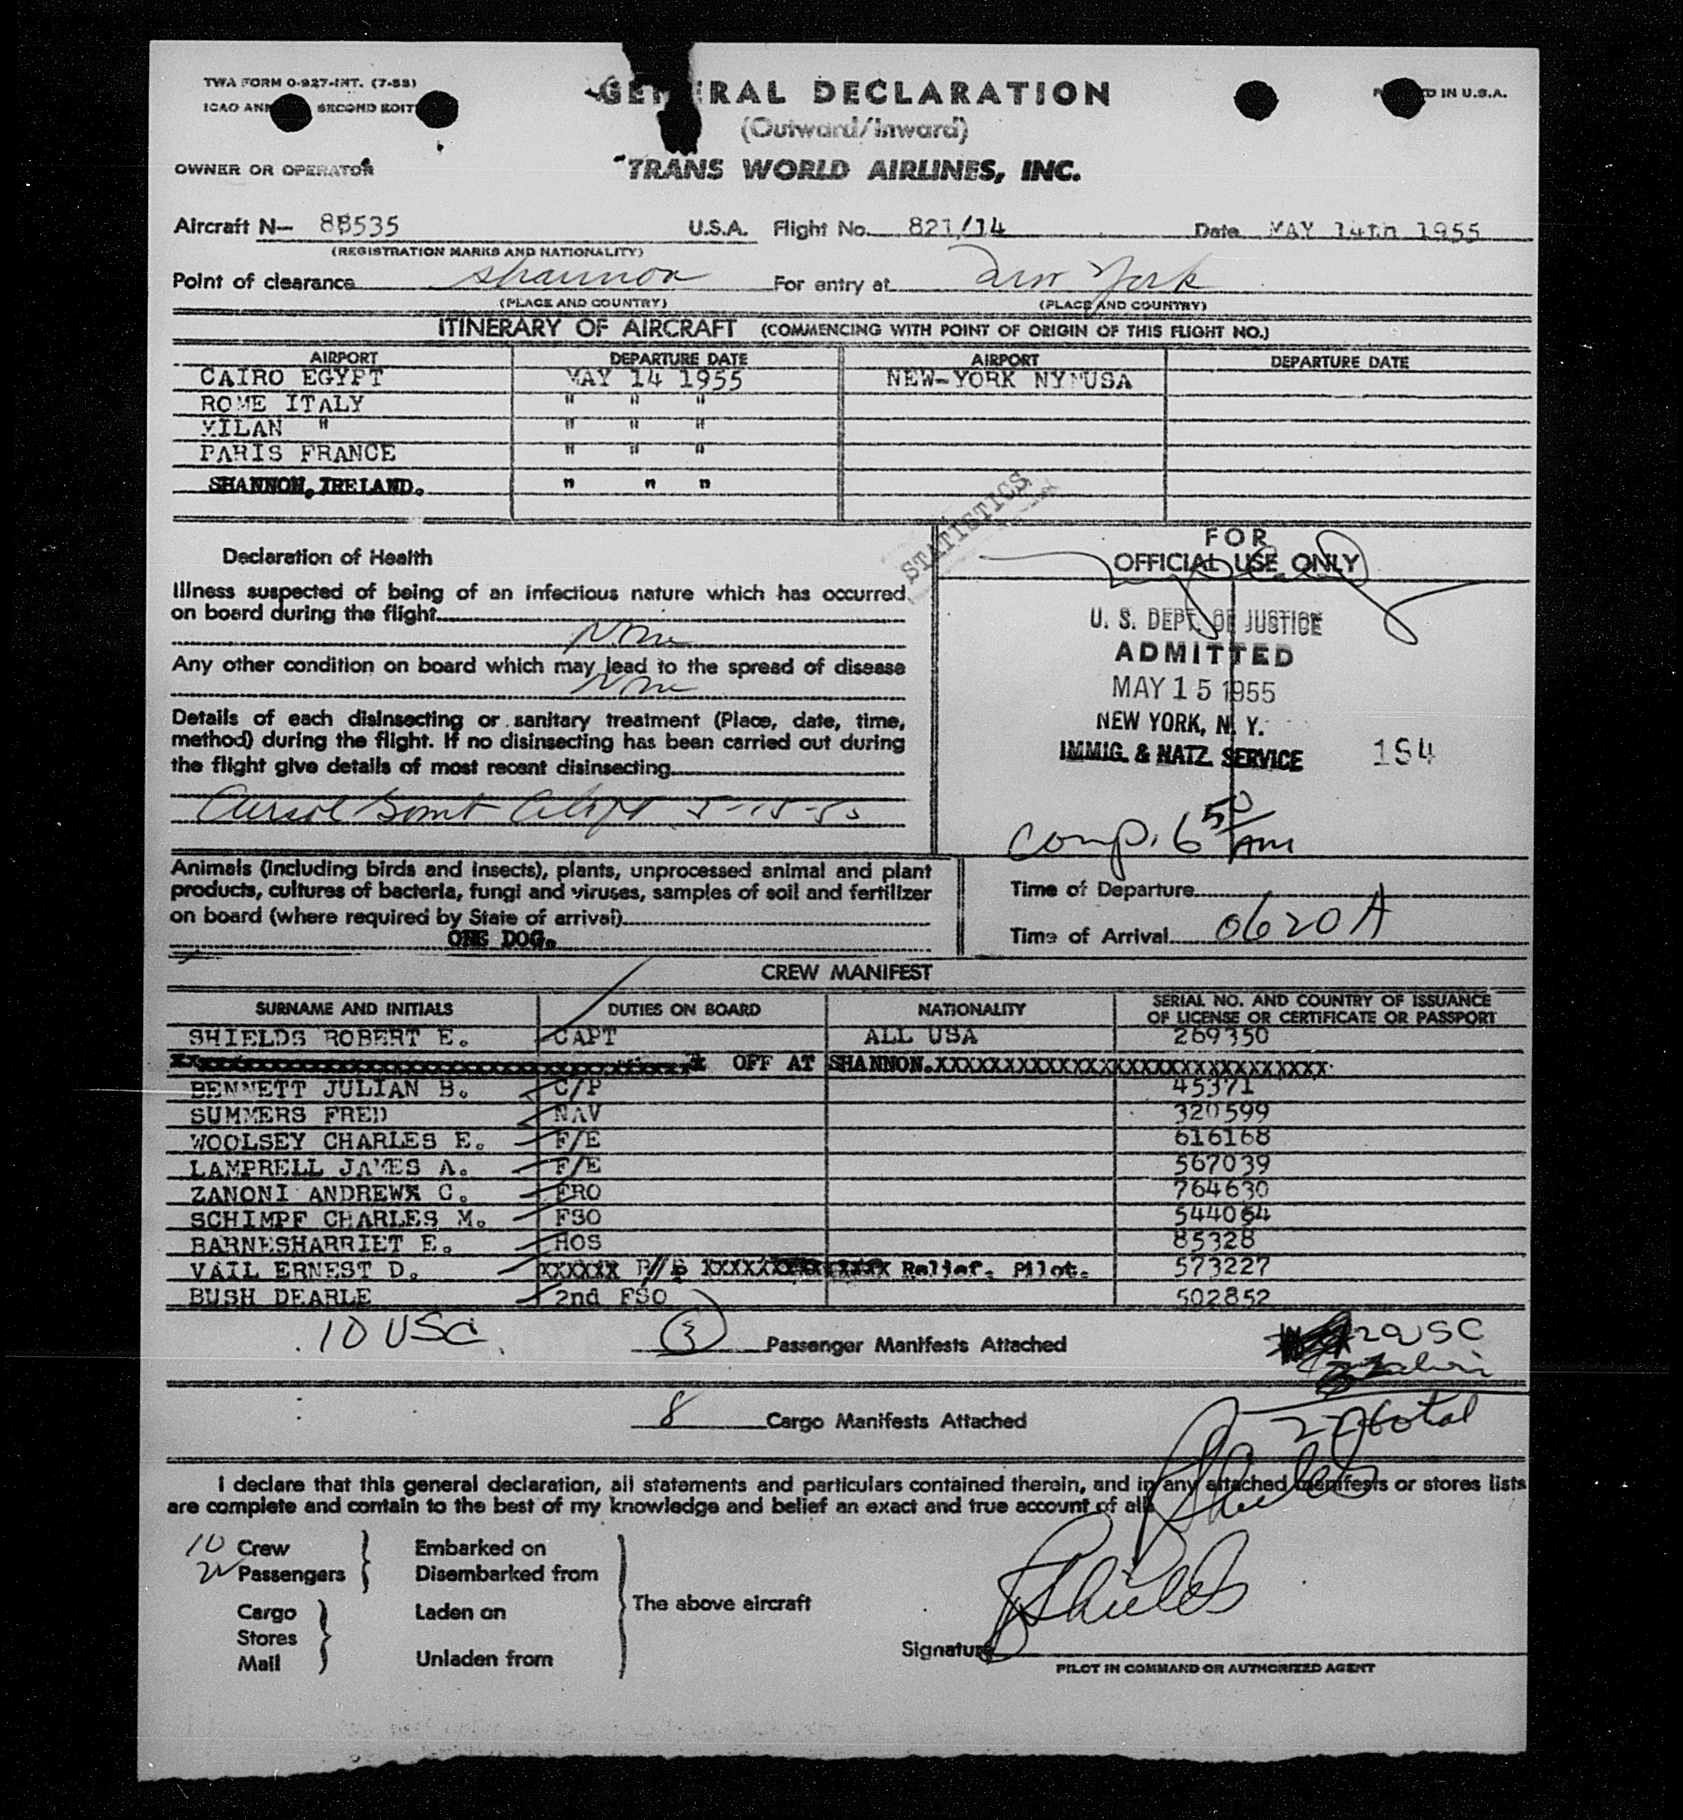 TWA FORM 0-927-INT. (7-53)
GENERAL DECLARATION
ICAO ANN SECOND EDIT
D IN U.S.A.
(Outward/Inward)
OWNER OR OPERATOR
TRANS WORLD AIRLINES, INC.
Aircraft N— 88535 U.S.A. Flight No. 821/14 Date MAY 14TH 1955
(REGISTRATION MARKS AND NATIONALITY)
Point of clearance Shannon For entry at New York
(PLACE AND COUNTRY) (PLACE AND COUNTRY)
ITINERARY OF AIRCRAFT (COMMENCING WITH POINT OF ORIGIN OF THIS FLIGHT NO.)
AIRPORT DEPARTURE DATE AIRPORT DEPARTURE DATE
CAIRO EGYPT MAY 14 1955 NEW-YORK NY USA
ROME ITALY " " "
MILAN " " " "
PARIS FRANCE " " "
SHANNON, IRELAND. " " "
STATISTICS
Declaration of Health
Illness suspected of being of an infectious nature which has occurred
on board during the flight
None
Any other condition on board which may lead to the spread of disease
None
Details of each disinsecting or sanitary treatment (Place, date, time,
method) during the flight. If no disinsecting has been carried out during
the flight give details of most recent disinsecting
5-15-55
FOR
OFFICIAL USE ONLY
U. S. DEPT. OF JUSTICE
ADMITTED
MAY 15 1955
NEW YORK, N. Y.
IMMIG. & NATZ. SERVICE 184
Comp. 6 50 AM
Animals (including birds and insects), plants, unprocessed animal and plant
products, cultures of bacteria, fungi and viruses, samples of soil and fertilizer
on board (where required by State of arrival)
ONE DOG.
Time of Departure
Time of Arrival 0620 A
CREW MANIFEST
SURNAME AND INITIALS DUTIES ON BOARD NATIONALITY SERIAL NO. AND COUNTRY OF ISSUANCE
OF LICENSE OR CERTIFICATE OR PASSPORT
SHIELDS ROBERT E. CAPT ALL USA 269350
OFF AT SHANNON.XXXXXXXXXXXXXXXXXXXXXXXXXXXXXX
BENNETT JULIAN B. C/P 45371
SUMMERS FRED NAV 320599
WOOLSEY CHARLES E. F/E 616168
LAMPRELL JAMES A. F/E 567039
ZANONI ANDREWX C. FRO 764630
SCHIMPF CHARLES M. FSO 544064
BARNESHARRIET E. HOS 85328
VAIL ERNEST D. XXXXXX Relief. Pilot. 573227
BUSH DEARLE 2nd FSO 502852
10 USC 3 Passenger Manifests Attached
USC
8 Cargo Manifests Attached
22 total
I declare that this general declaration, all statements and particulars contained therein, and in any attached manifests or stores lists
are complete and contain to the best of my knowledge and belief an exact and true account of all
RShields
10 Crew Embarked on
22 Passengers Disembarked from
Cargo Laden on
The above aircraft
Stores
Mail Unladen from
RShields
Signature
PILOT IN COMMAND OR AUTHORIZED AGENT